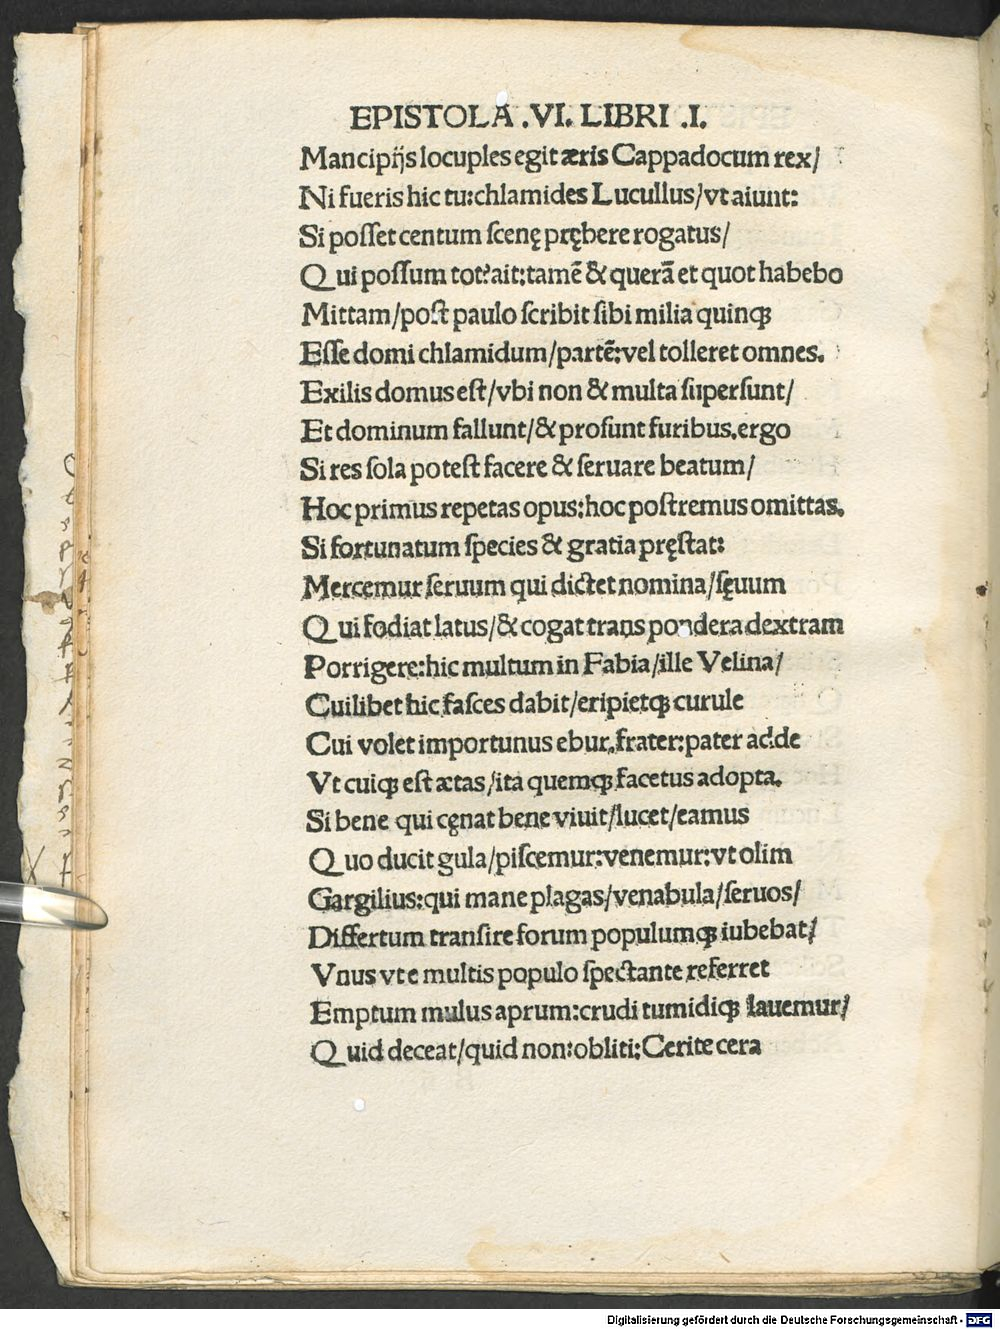 EPISTOLA .VI. LIBRI .I.
Mancipijs locuples egit æris Cappadocum rex/
Ni fueris hic tu:chlamides Lucullus/vt aiunt:
Si posset centum scenę prębere rogatus/
Qui possum tot?ait:tamē & querā et quot habebo
Mittam/post paulo scribit sibi milia quinqꝫ
Esse domi chlamidum/partē:vel tolleret omnes.
Exilis domus est/vbi non & multa supersunt/
Et dominum fallunt/& prosunt furibus.ergo
Si res sola potest facere & seruare beatum/
Hoc primus repetas opus:hoc postremus omittas.
Si fortunatum species & gratia pręstat:
Mercemur seruum qui dictet nomina/sęuum
Qui fodiat latus/& cogat trans pondera dextram
Porrigere:hic multum in Fabia/ille Velina/
Cuilibet hic fasces dabit/eripietqꝫ curule
Cui volet importunus ebur.frater:pater adde
Vt cuiqꝫ est ætas/ita quemqꝫ facetus adopta.
Si bene qui cęnat bene viuit/lucet/eamus
Quo ducit gula/piscemur:venemur:vt olim
Gargilius:qui mane plagas/venabula/seruos/
Differtum transire forum populumqꝫ iubebat/
Vnus vt e multis populo spectante referret
Emptum mulus aprum:crudi tumidiqꝫ lauemur/
Quid deceat/quid non:obliti:Cerite cera
Digitalisierung gefördert durch die Deutsche Forschungsgemeinschaft - DFG